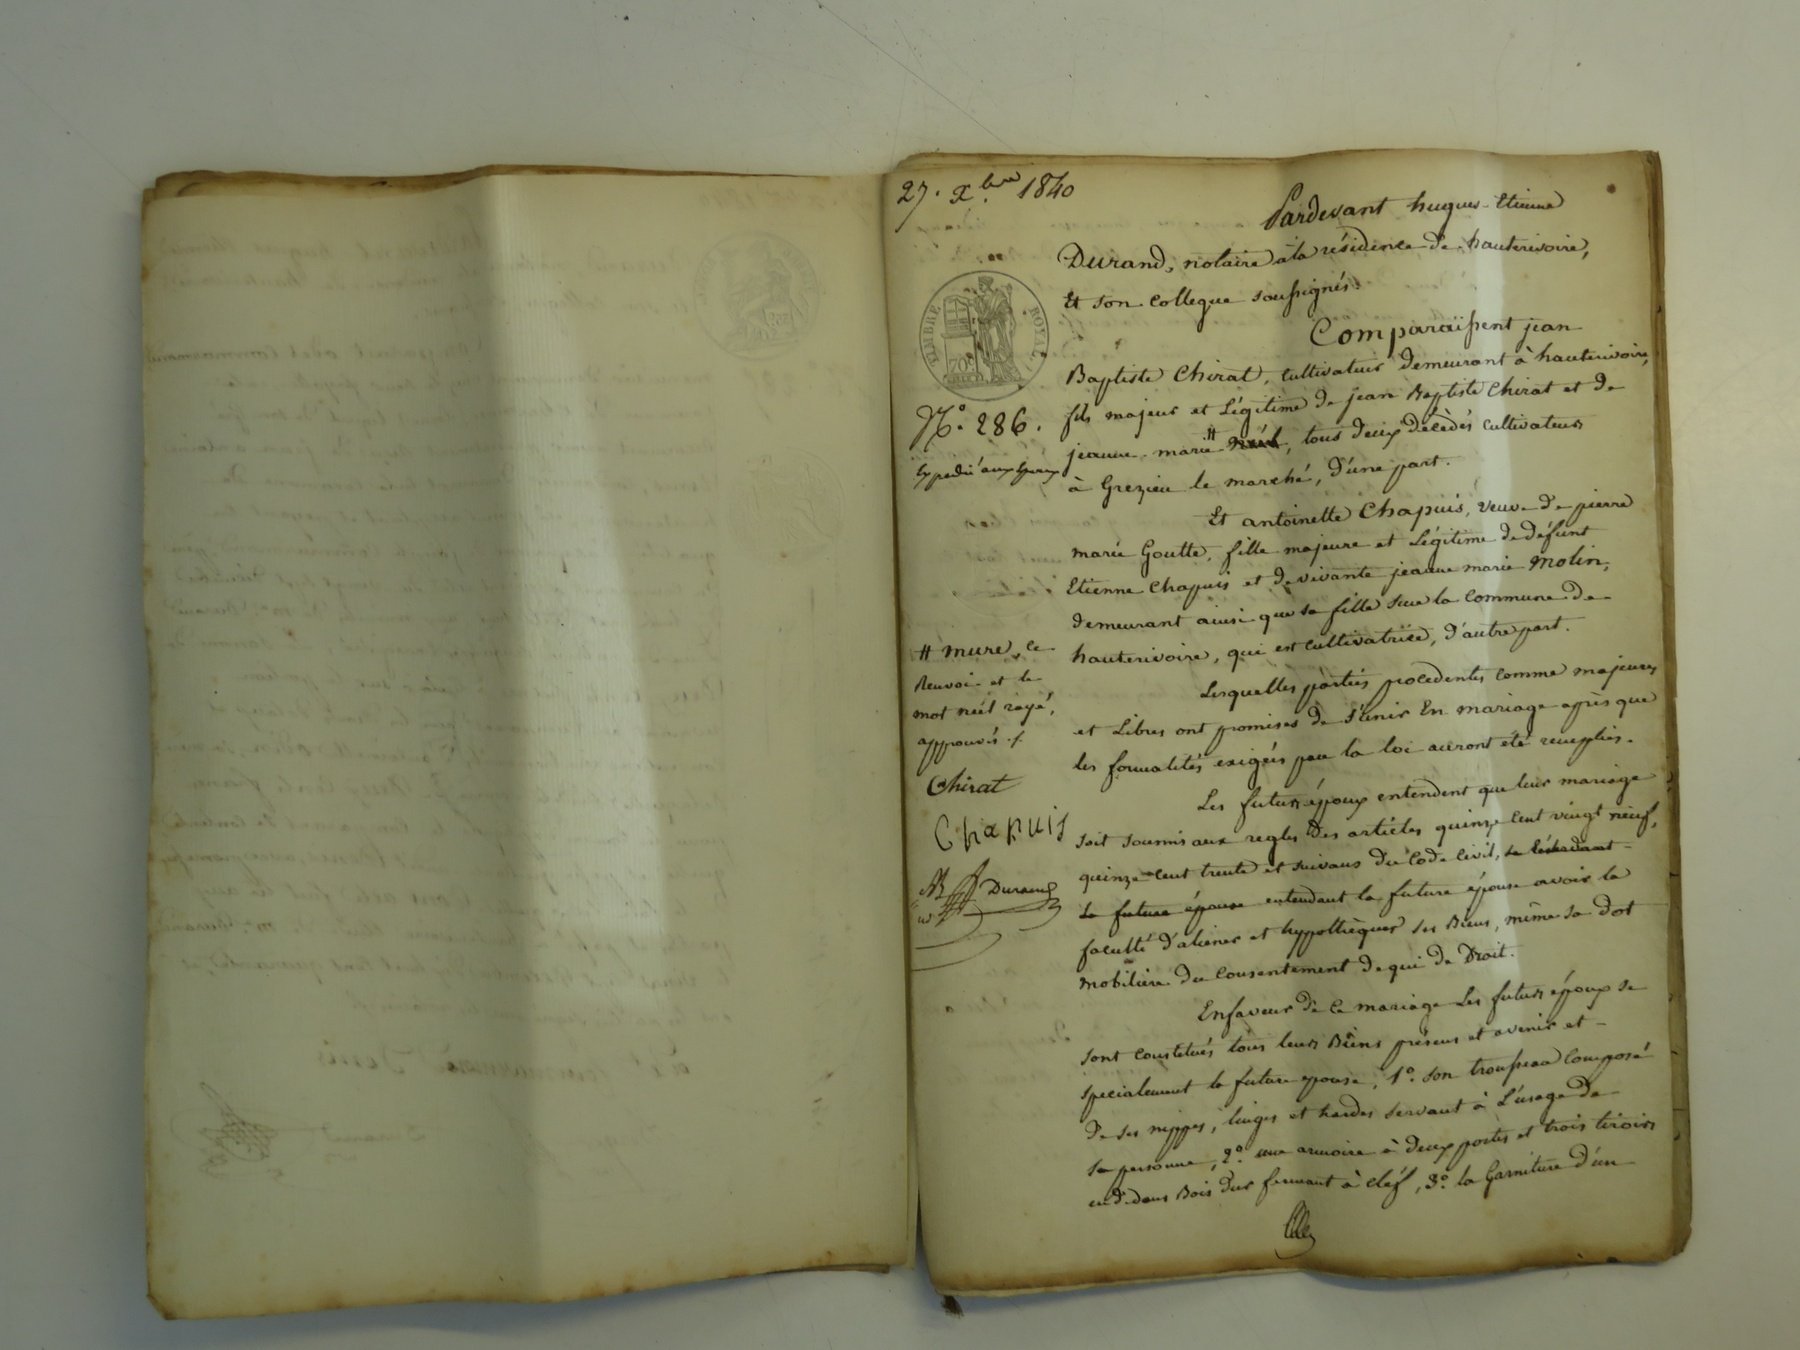 27. Xbre 1840
Pardevant hugues-Etienne
Durand, notaire à la résidence de hauterivoire,
Et son collegue soussignés.
Comparaissent jean
Baptiste Chirat, cultivateur demeurant à hauterivoire,
fils majeur et Légitime de jean Baptiste Chirat et de
jeanne marie # néel, tous deux décèdés cultivateurs
à Grezieu le marché, d'une part.
Et antoinette Chapuis, veuve de pierre
marie Goutte, fille majeure et Légitime de défunt
Etienne Chapuis et de vivante jeanne marie Molin,
demeurant ainsi que sa fille sur la commune de
hauterivoire, qui est cultivatrice, d'autre part.
Lesquelles parties procedentes comme majeures
et Libres ont promises de s'unir En mariage après que
les formalités exigées par la loi auront été remplies.
Les futurs époux entendent que leur mariage
soit soumis aux regles des articles quinze cent vingt neuf,
quinze cent trente et suivans du Code Civil,
la future épouse entendant la future épouse avoir la
faculté d'aliéner et hyppothèquer ses Biens, même sa dot
mobiliere du consentement de qui de Droit.
Enfaveur de ce mariage Les futurs époux se
sont constitués tous leurs Biens présens et avenir et
specialement la future epouse, 1°. son trousseau composé
de ses nippes, linges et hardes servant à L'usage de
sa personne, 2°. une armoire à deux portes et trois tiroirs
endedans Bois dur fermant à cléf, 3°. la Garniture d'un
TIMBRE ROYAL
70c
N°. 286.
Expedié aux Epoux
# mure, ce
Renvoi et le
mot néel rayé,
approuvés ./.
Chirat
Chapuis
Durand